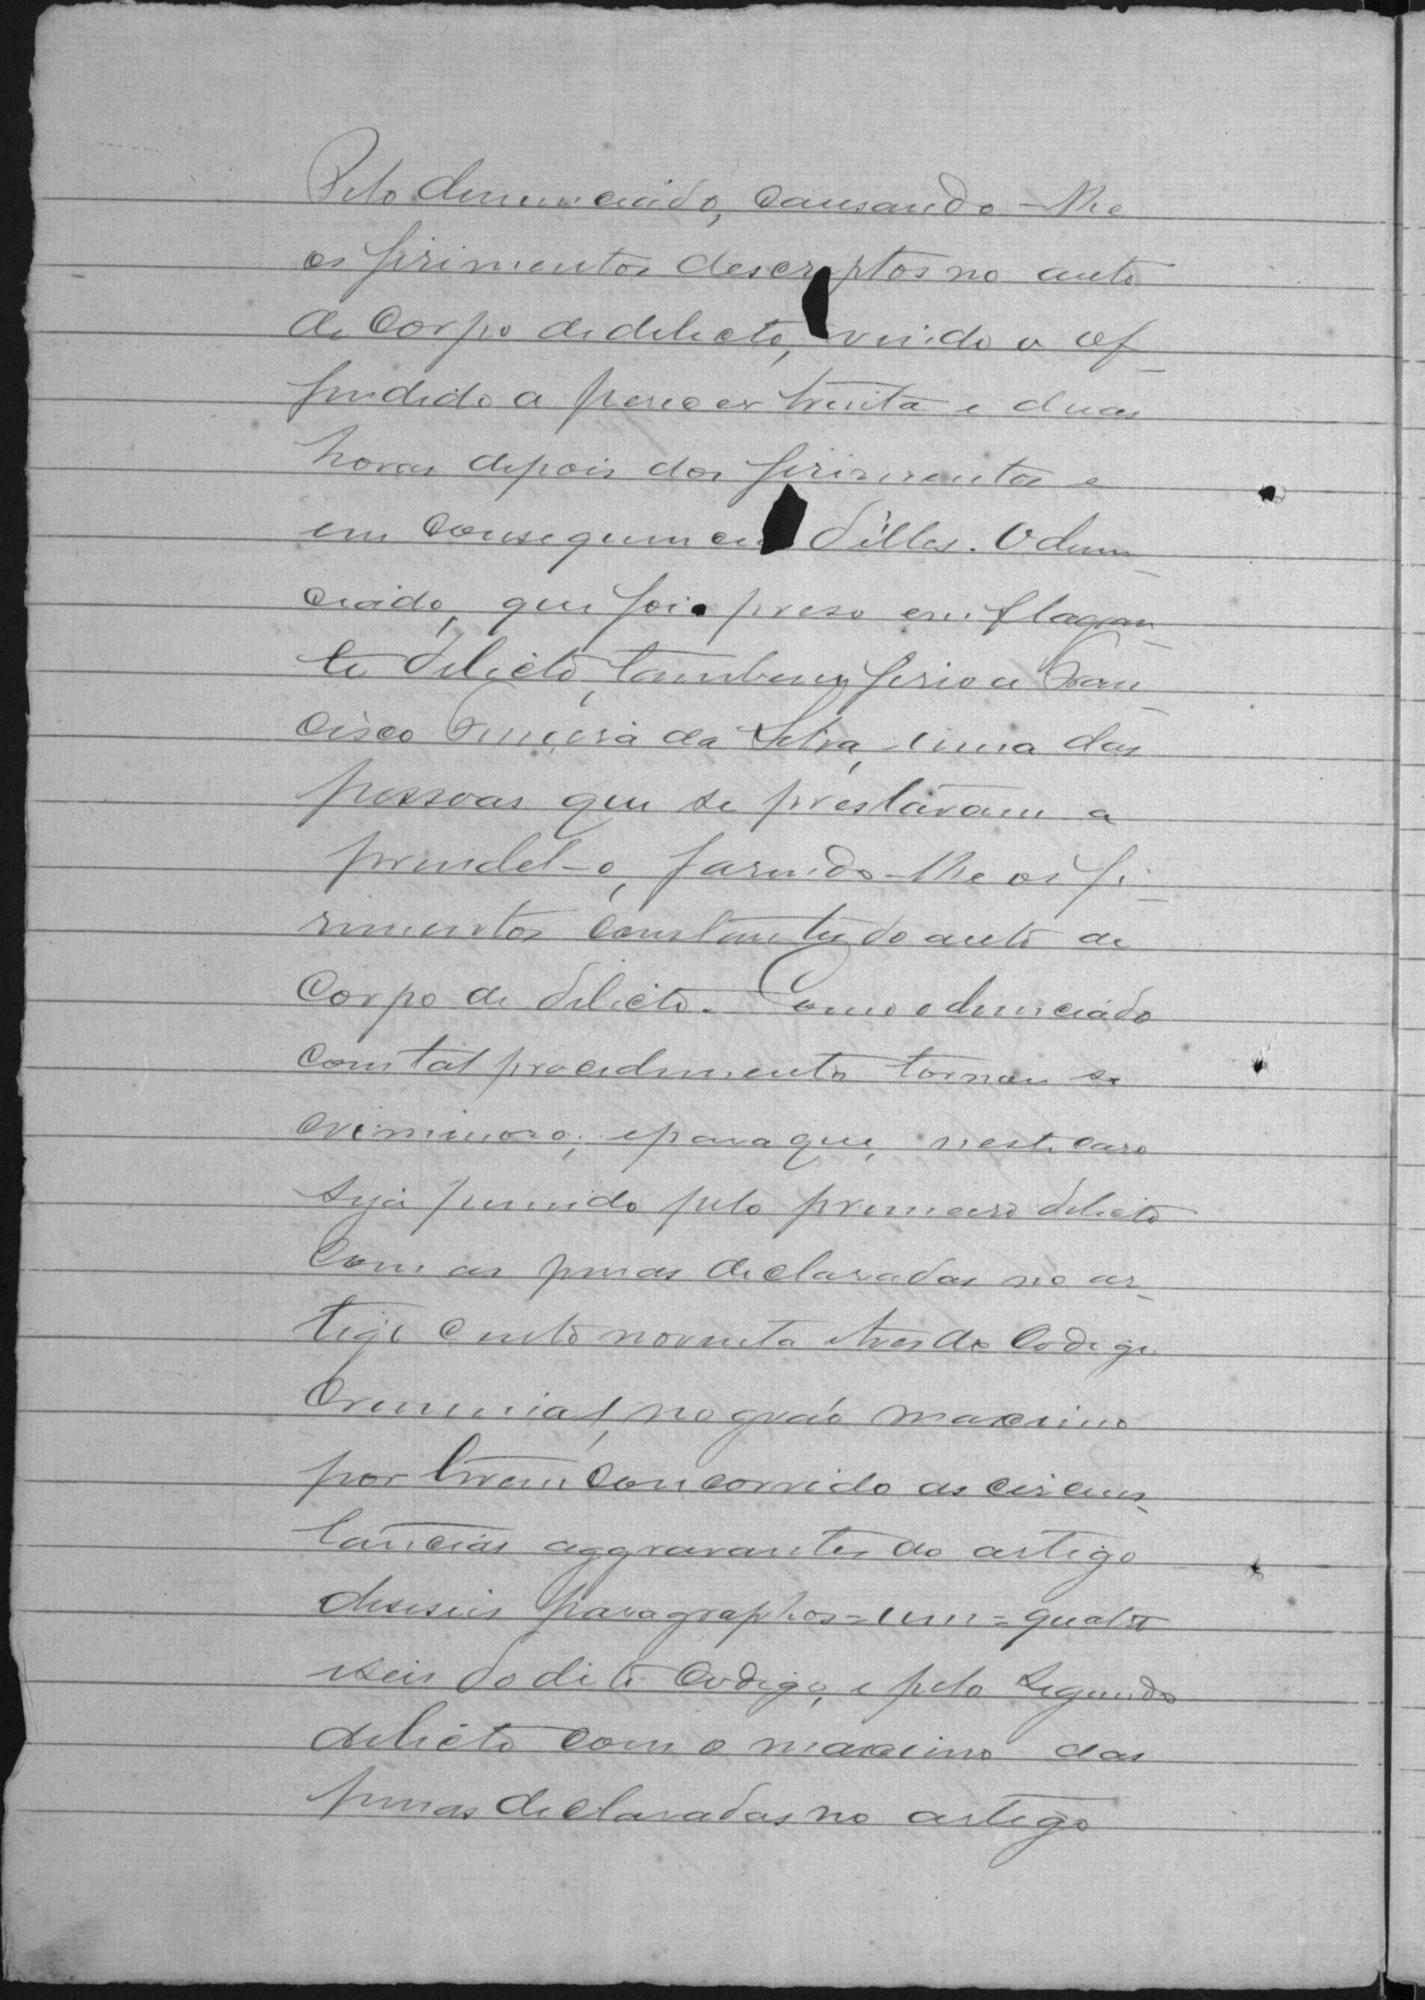 Pelo denunciado, causando-lhe
os ferimentos descriptos no auto
de Corpo de delicto, vindo o of-
fendido a perecer trinta e duas
horas depois dos ferimentos e
em consequencia d'elles. O denun-
ciado, que foi preso em flagran-
te delicto, tambem ferio a Fran-
cisco da Silva, uma das
pessoas que se prestáram a
prendel-o, fasendo-lhe os fe-
rimentos constantes do auto de
Corpo de delicto. Como o denunciado
com tal procedimento tornou se
criminoso; e para que, neste caso
seja punido pelo primeiro delicto
com as penas declaradas no ar-
tigo cento noventa e tres do Codigo
Criminal, no gráo maximo
por terem concorrido as circuns-
tancias aggravantes do artigo
deseseis paragraphos=um=quatro
e seis do dito Codigo, e pelo segundo
delicto com o maximo das
penas declaradas no artigo